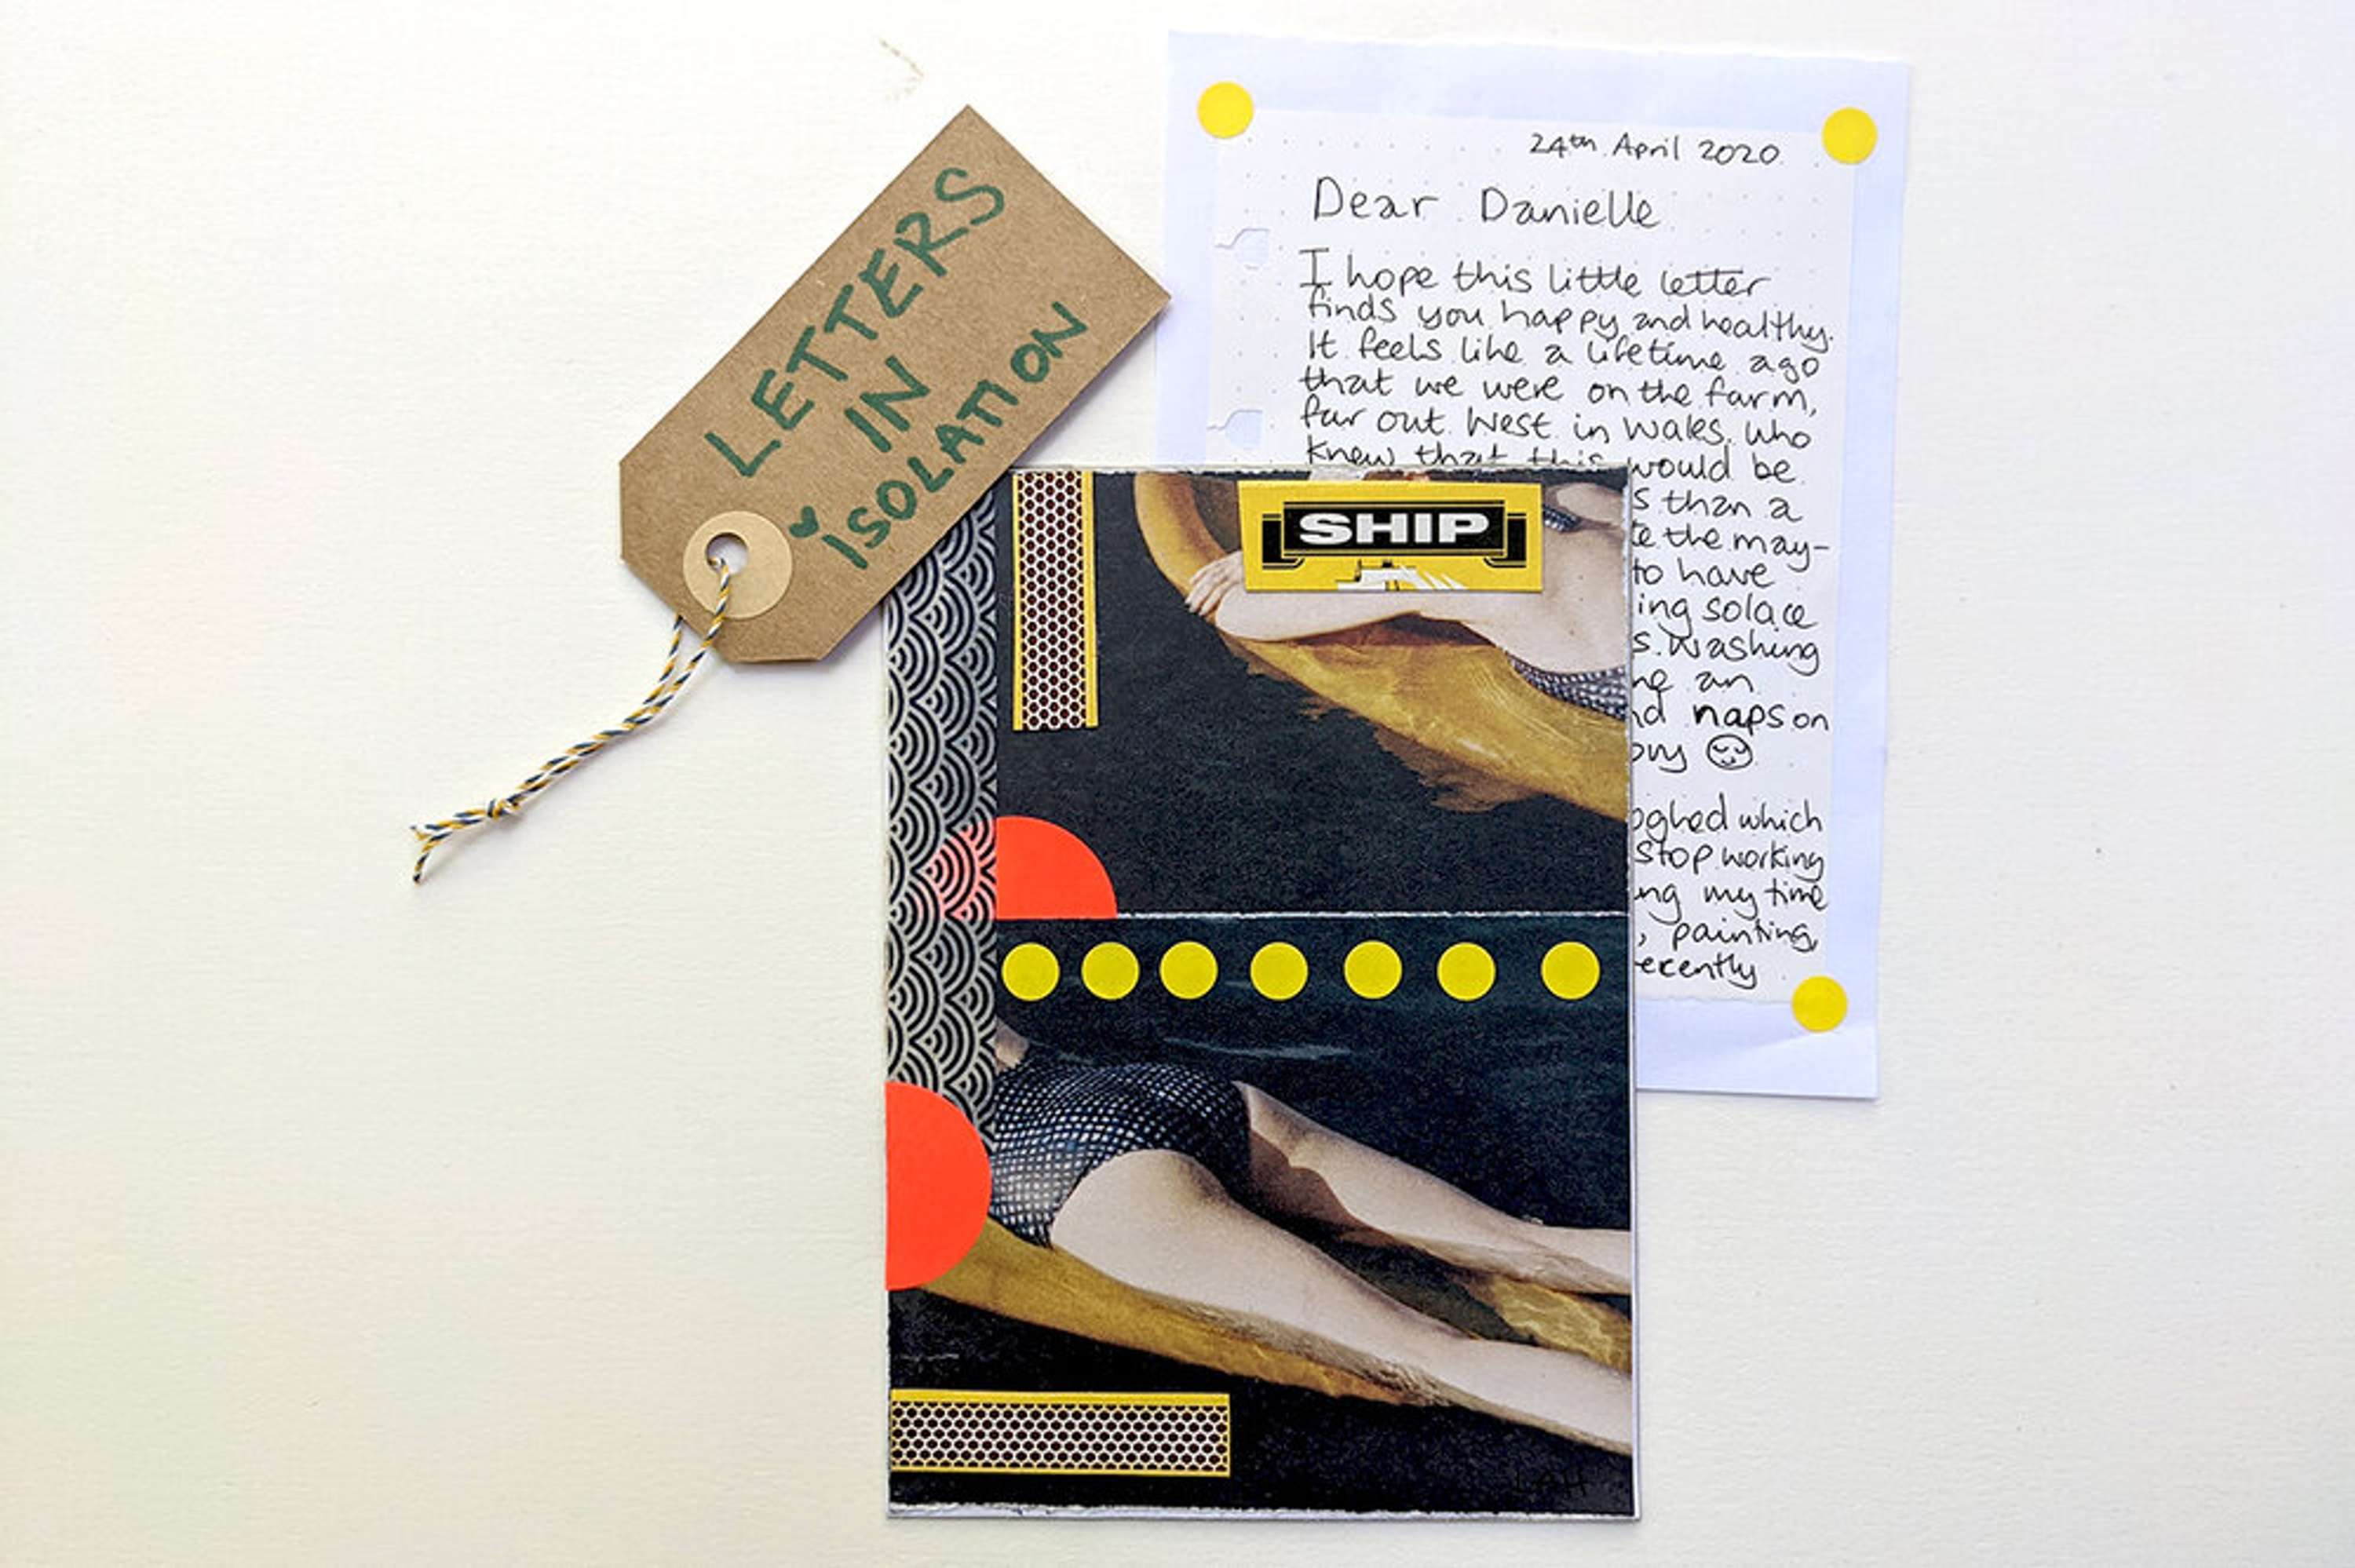 LETTERS
IN
ISOLATION
24th April 2020
Dear Danielle
I hope this little letter
finds you happy and healthy.
It feels like a lifetime ago
that we were on the farm,
far out West in Wales. Who
knew that this would be
s than a
the may-
to have
ing solace
s. Washing
an
naps on
which
stop working
ng my time
, painting,
ecently
SHIP
LAH